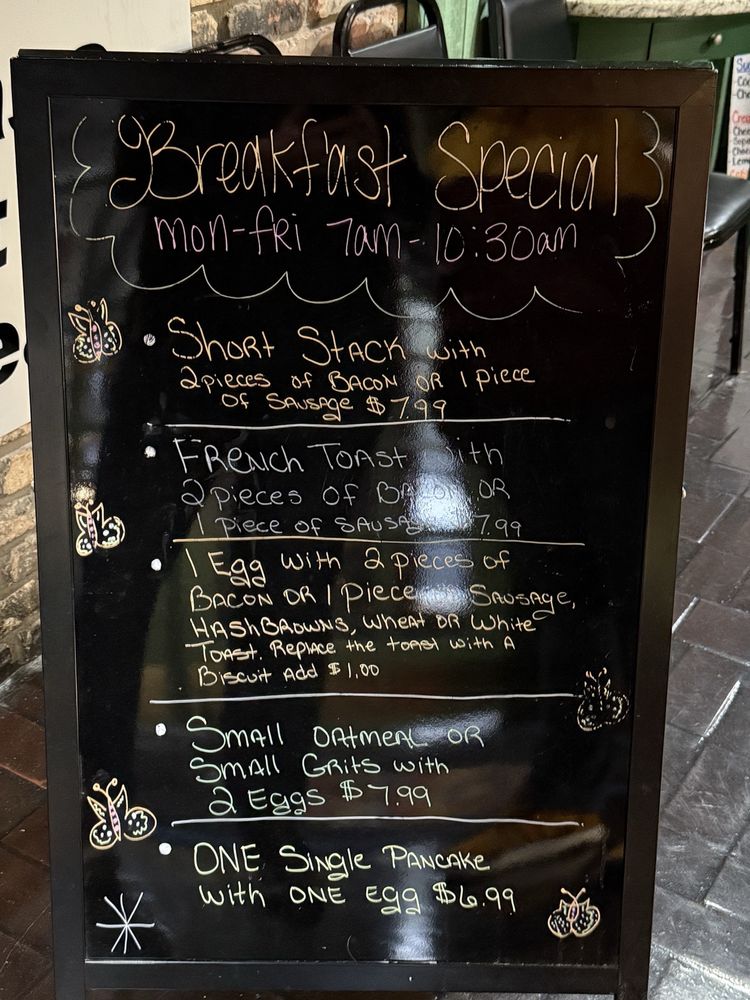 Breakfast Special
mon-fri 7am-10:30am
Short Stack with
2 pieces of Bacon or 1 piece
of Sausage $7.99
French Toast with
2 pieces of Bacon or
1 Piece of Sausage $7.99
1 Egg with 2 pieces of
Bacon or 1 Piece of Sausage,
Hashbrowns, Wheat or White
Toast. Replace the toast with a
Biscuit Add $1.00
Small Oatmeal or
Small Grits with
2 Eggs $7.99
One Single Pancake
with one egg $6.99